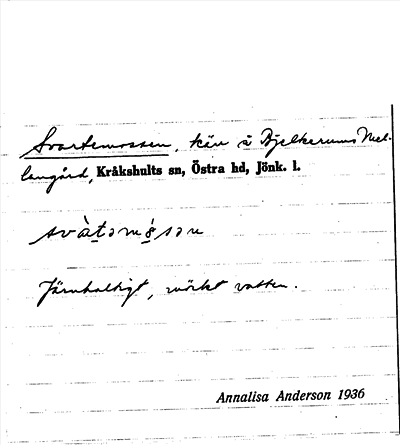 Svartemossen, kärr å Bjelkerums Mel-
langård, Kråkshults sn, Östra hd, Jönk. l.
svàt̲əmó̲sən
Järnhaltigt, mörkt vatten.
Annalisa Anderson 1936